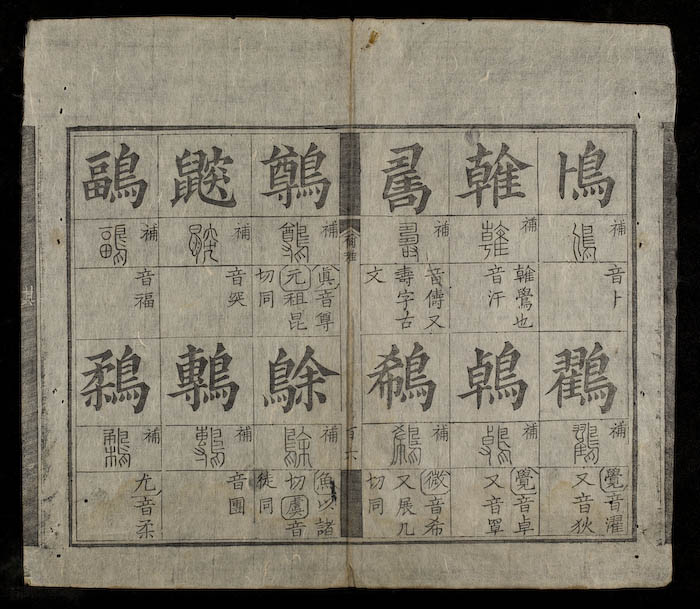 鳪
補
音卜
雗
補
雗鷽也
音汗
補
音儔又
壽字古
文
鸐
補
覺音濯
又音狄
鵫
補
覺音卓
又音罩
鵗
補
微音希
又展几
切同
百六
鷷
補
眞音尊
元祖昆
切同
鼵
補
音突
鶝
補
音福
鵌
補
魚以諸
切虞音
徒同
鷒
補
音團
鶔
補
尤音柔